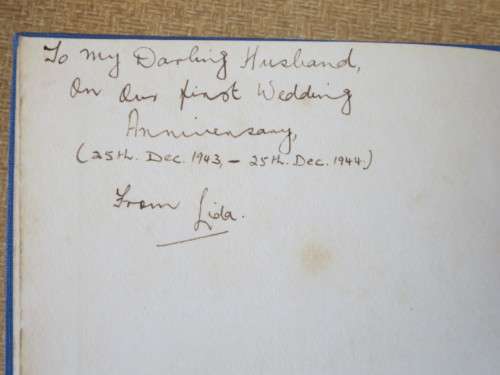 To My Darling Husband,
On Our first Wedding
Anniversary,
(25th. Dec. 1943, – 25th. Dec. 1944.)
From Lida.